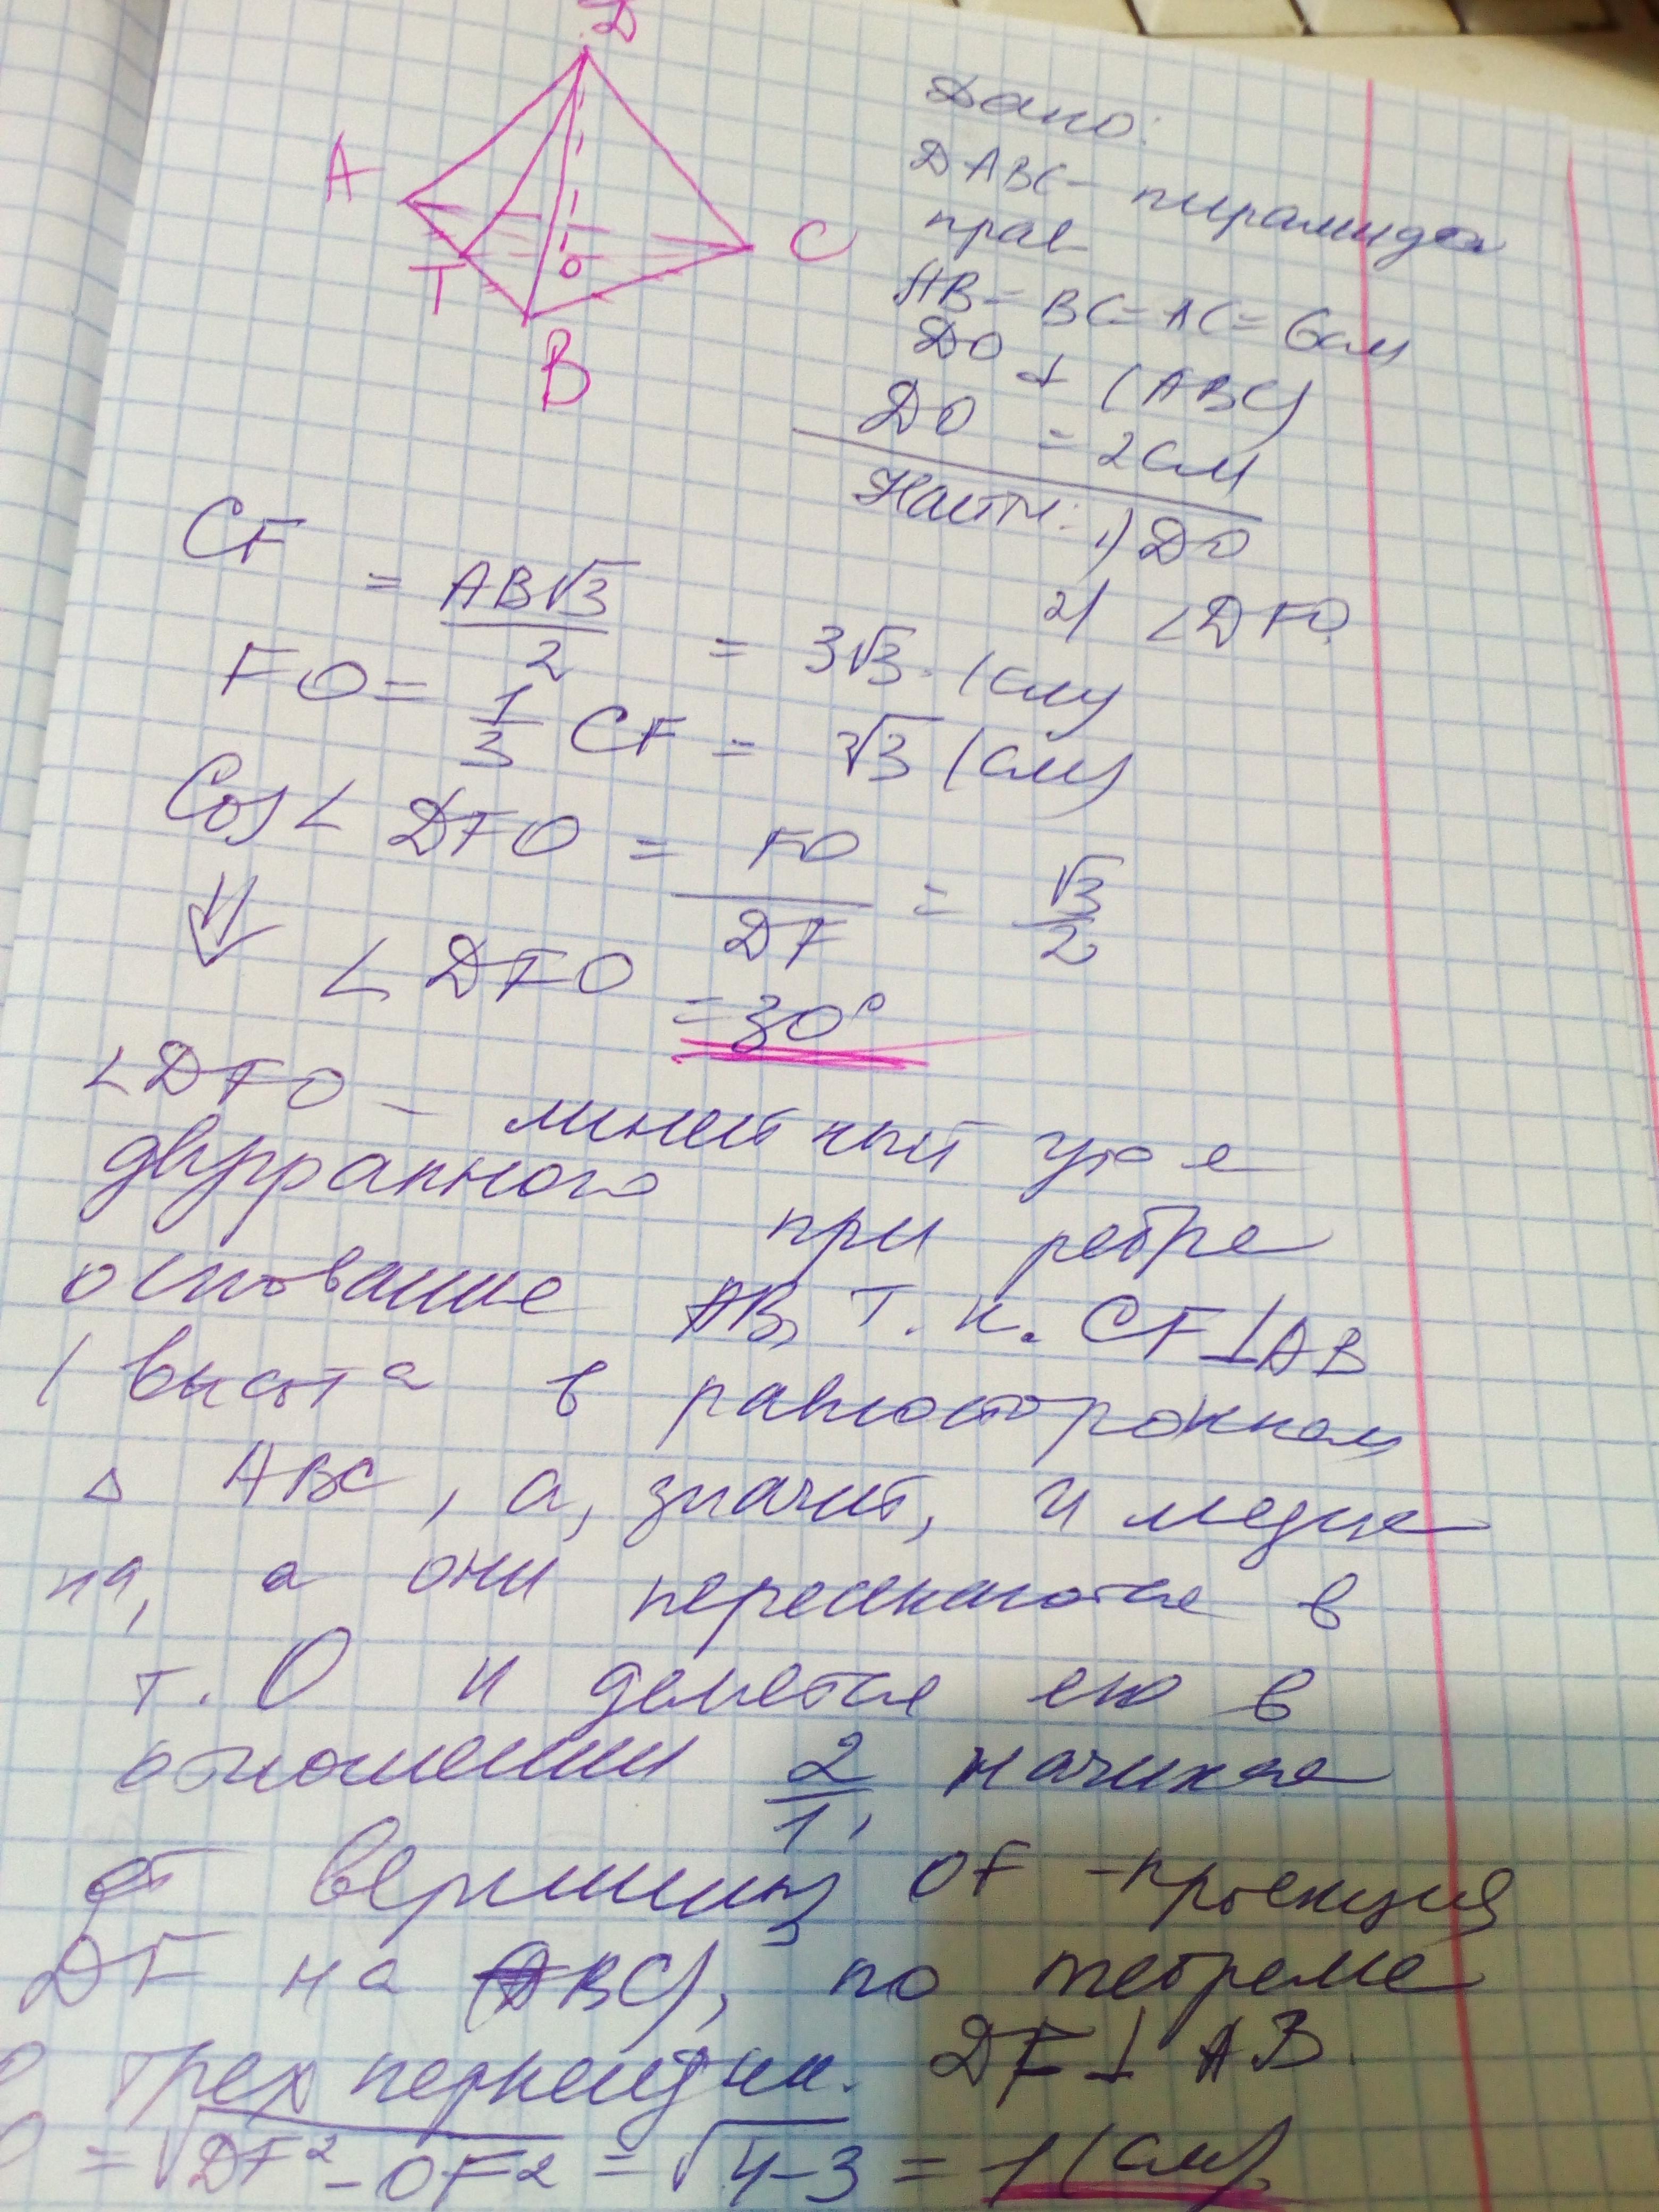 D
A
C
T
O
B
Дано:
DABC - пирамида
прав
AB = BC = AC = 6см
DO ⊥ (ABC)
DO = 2см
Найти: 1) DO
2) ∠DFO
CF = AB√3/2 = 3√3 (см)
FO = 1/3 CF = √3 (см)
Cos∠ DFO = FO/DF = √3/2
⇓ ∠DFO = 30°
∠DFO – линейный угол
двугранного при ребре
основание AB, т.к. CF⊥AB
(высота в равностороннем
△ ABC, а, значит, и медиа
на, а они пересекаются в
т. O и делятся ею в
отношении 2/1, начиная
от вершины, OF - проекция
DF на (ABC), по теореме
трех перпендик. DF ⊥ AB.
= √DF² - OF² = √4-3 = 1 (см).